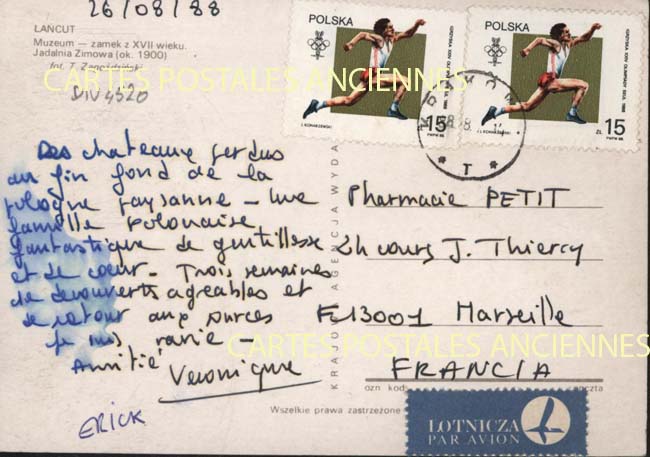 26/08/88
ŁAŃCUT
Muzeum — zamek z XVII wieku.
Jadalnia Zimowa (ok. 1900)
fot. T.
DIV4520
POLSKA
15
POLSKA
ZŁ 15
CARTES POSTALES ANCIENNES
Des chateaux perdus
au fin fond de la
pologne paysanne - une
famille Polonaise
fantastique de gentillesse
et de coeur - Trois semaines
de decouverts agreables et
de retour aux sources
Je suis ravie -
Amitié
Veronique
ERICK
Pharmacie PETIT
2h cours J. Thierry
F13001 Marseille
FRANCIA
CARTES POSTALES ANCIENNES
KRAJOWA AGENCJA WYDA
ozn kod
Wszelkie prawa zastrzeżone
LOTNICZA
PAR AVION